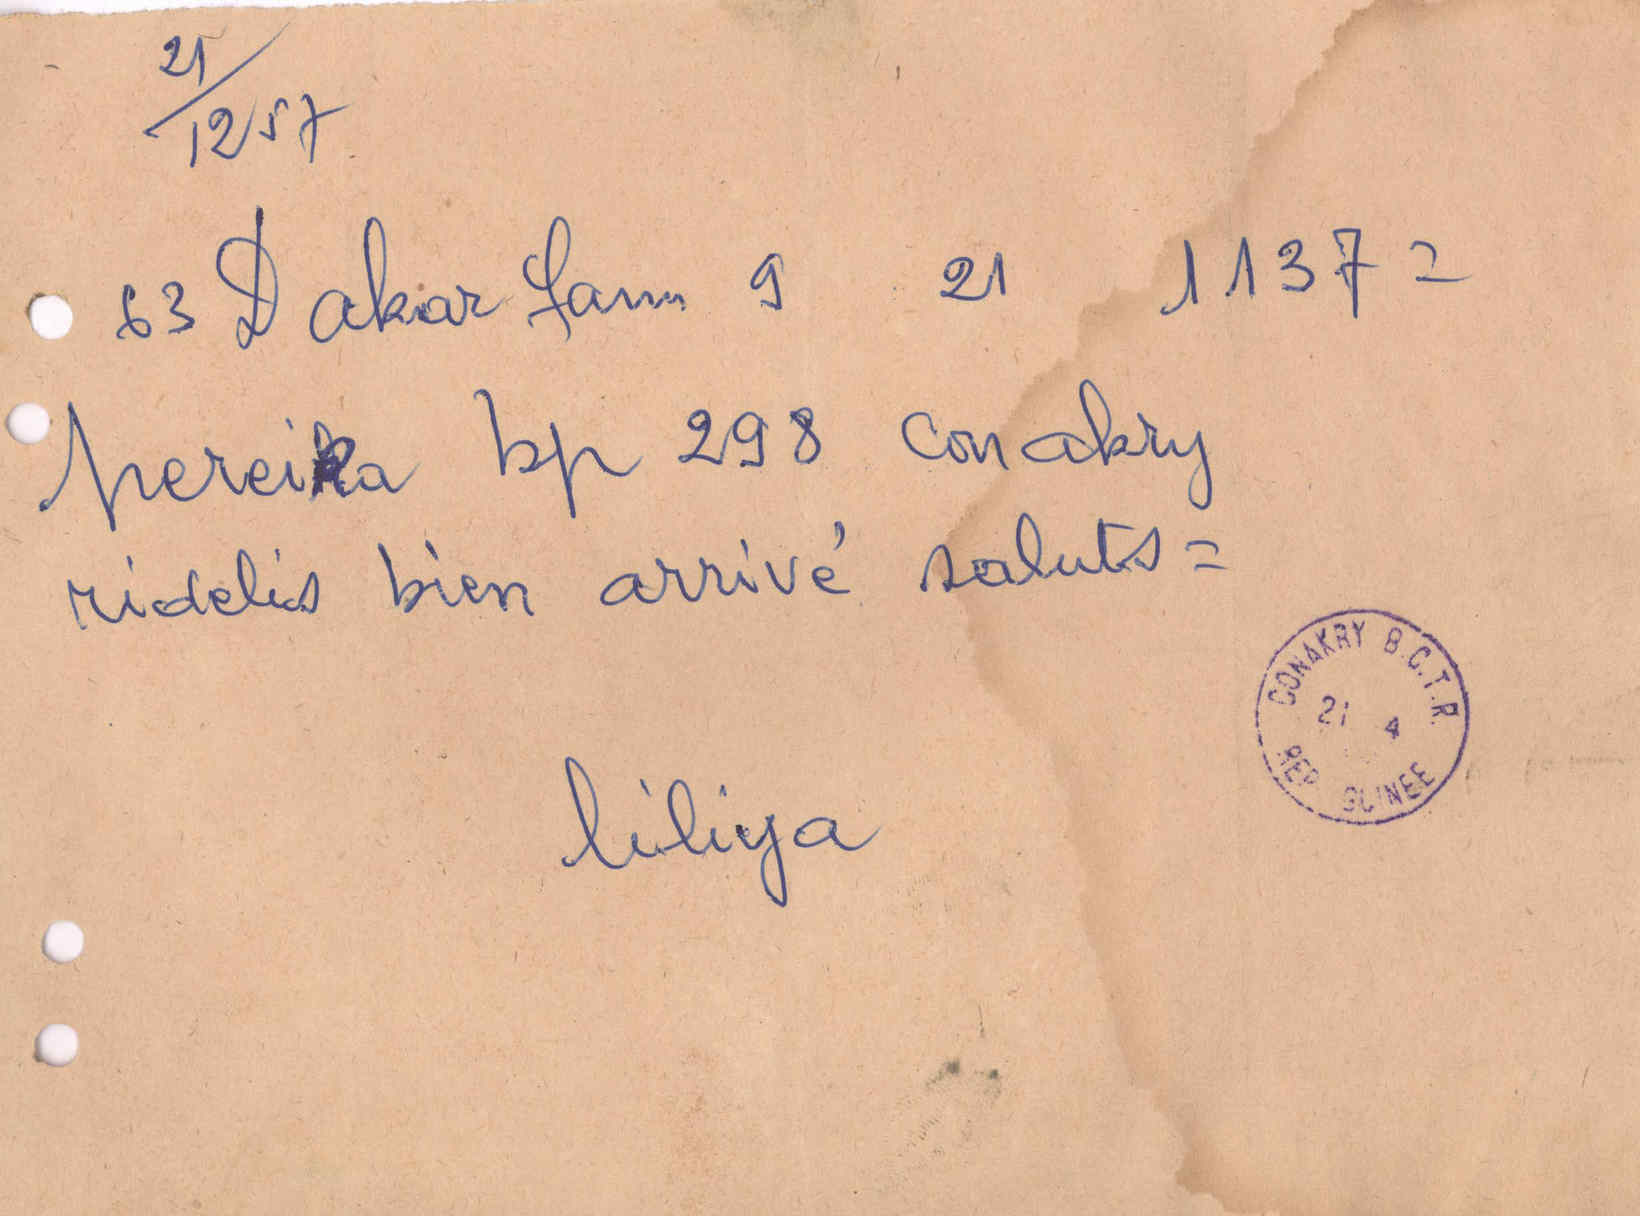 21/
12 57
63 Dakar fann 9 21 1137=
pereira bp 298 conakry
ridelis bien arrivé saluts=
CONAKRY B.C.T.R.
21 4
REP GUINEE
liliya